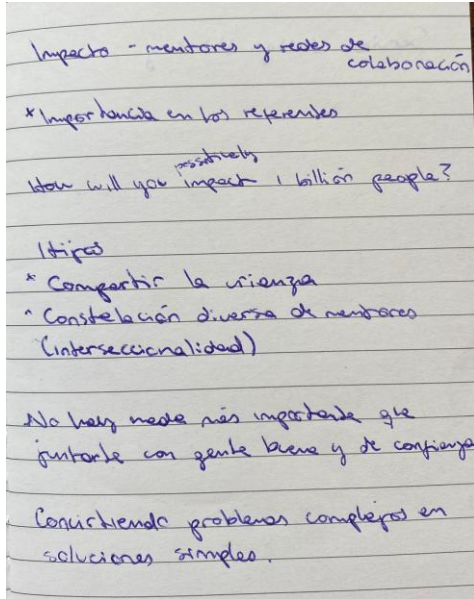 Impacto - mentores y redes de
colaboración
* Importancia en los referentes
possitively
How will you impact 1 billion people?
* Compartir la crianza
* Constelación diversa de mentores
(interseccionalidad)
No hay nada más importante que
juntarte con gente buena y de confianza
Convirtiendo problemas complejos en
soluciones simples.